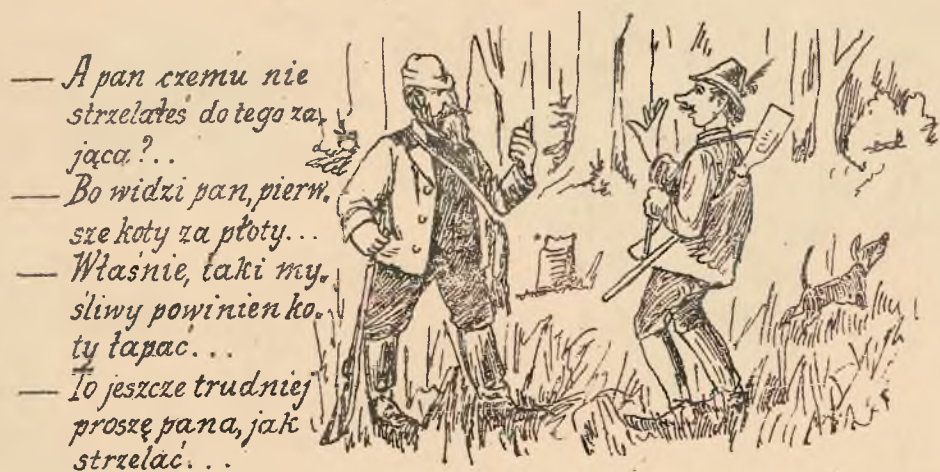 — A pan czemu nie
strzelałeś do tego za-
jąca?..
— Bo widzi pan, pierw-
sze koty za płoty...
— Właśnie, taki my-
śliwy powinien ko-
ty łapać...
— To jeszcze trudniej
proszę pana, jak
strzelać...